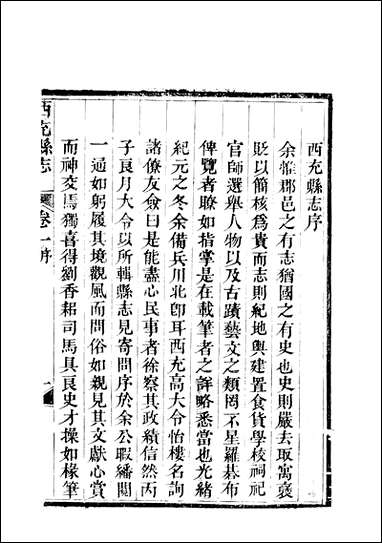 西充縣志序
余維郡邑之有志猶國之有史也史則嚴去取寓褒
貶以簡核爲貴而志則紀地輿建置食貨學校祠祀
官師選舉人物以及古蹟藝文之類罔不星羅棊布
俾覽者瞭如指掌是在載筆者之詳略悉當也光緒
紀元之冬余備兵川北卽耳西充高大令怡樓名詢
諸僚友僉曰是能盡心民事者徐察其政績信然丙
子良月大令以所輯縣志見寄問序於余公暇繙閱
一通如躬履其境觀風而問俗如親見其文獻心賞
而神交焉獨喜得劉香耜司馬具良史才操如椽筆
西充縣志
卷一序
一